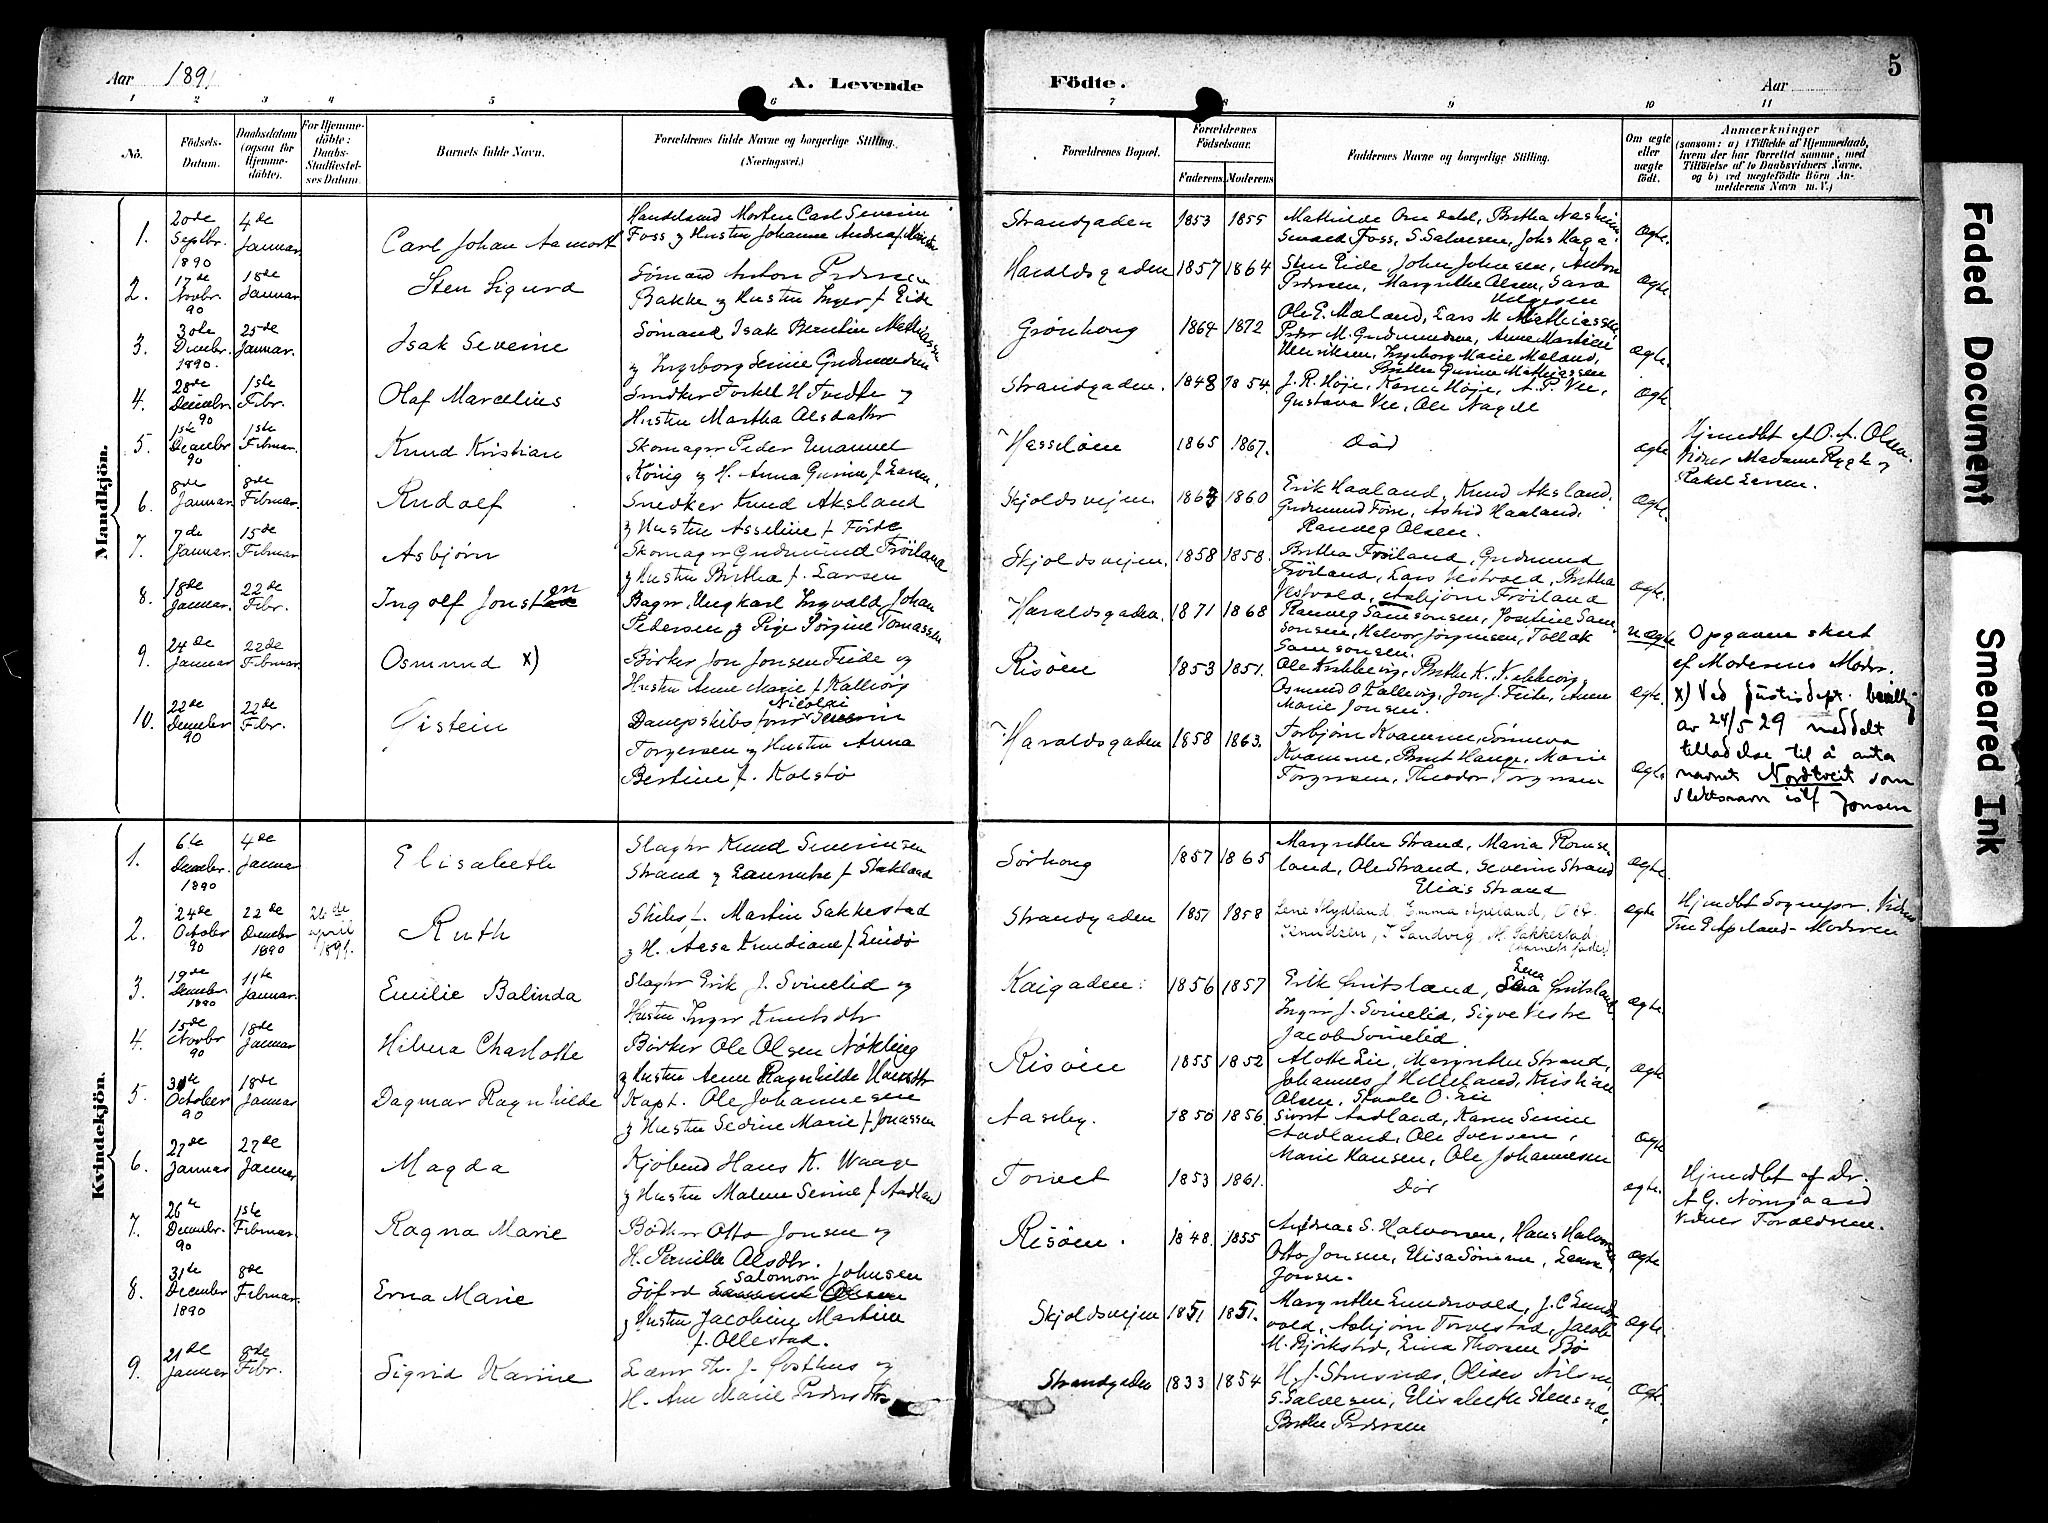 Aar 1891
A. Levende
Födte.
Aar
5
1 2 3 4 5 6 7 8 9 10 11
Nö.
Födsels-Datum.
Daabsdatum (ogsaa for Hjemme-döbte).
For Hjemme-döbte: Daabs-Stadfæstelses Datum.
Barnets fulde Navn.
Forældrenes fulde Navne og borgerlige Stilling. (Næringsvei.)
Forældrenes Bopæl.
Forældrenes Födselsaar.
Faderens Moderens
Faddernes Navne og borgerlige Stilling.
Om ægte eller uægte födt.
Anmærkninger
(saasom: a) i Tilfælde af Hjemmedaab,
hvem der har forrettet samme, med
Tilföielse af to Daabsvidners Navne,
og b) ved uægtefödte Börn An-
melderens Navn m. V.)
Mandkjön.
1. 20de Septbr. 1890 4de Januar Carl Johan Handelsmd Morten Carl Severin
Foss og Hustru Johanne Strandgaden 1853 1855 Mathilde Omdal,
Foss, S. Salvesen, Johs Haga ægte.
2. 17de Novbr. 90 18de Januar Sten Sigurd Sömand Anton Pedersen
Bakke og Hustru Inger f. Eide Haraldsgaden 1857 1864 Sten Eide, John Johnsen, Anton
Pedersen, Margrethe Olsen, Sara Helgesen ægte.
3. 30te Decmbr. 1890. 25de Januar. Isak Severine Sömand Isak Berntin Mathiassen
og Ingeborg Serine Gudmundsen Grönhoug 1864 1872 Ole E. Mæland, Lars M. Mathiassen,
Peder M. Gudmundsen, Anne Martine
Henriksen, Ingeborg Marie Mæland,
Berthe Gurine Mathiassen ægte.
4. 28de Decmbr. 90 1ste Febr. Olaf Marcelius Snedker Torkel H. Tvedte og
Hustru Martha Olsdatter Strandgaden. 1848 1854. J. R. Höje, Karen Höje, A. P. Vee,
Gustava Vee, Ole Nagel ægte
5. 1ste Decembr 90 1ste Februar. Knud Kristian Skomager Peder Emanuel
König og H. Anna Gurine f. Larsen. Hasselöen 1865 1867. Död ægte Hjemdbt af O. A. Olsen.
Vidner Madame Rygh og
Rakel Larsen.
6. 8de Januar. 8de Februar. Rudolf Snedker Knud Aksland
og Hustru Asseline f. Förde Skjoldsvejen. 1863 1860 Erik Haaland, Knud Aksland,
Gudmund Före, Astrid Haaland,
Ranveg Olsen. ægte.
7. 7de Januar. 15de Februar Asbjörn Skomager Gudmund Fröiland
og Hustru Bertha f. Larsen Skjoldsvejen. 1858 1858. Bertha Fröiland, Gudmund
Fröiland, Lars Vestvold, Bertha
Vestvold, Asbjörn Fröiland ægte.
8. 18de Januar. 22de Febr. Ingolf Bager, Ungkarl Ingvald Johan
Pedersen og Pige Jörgine Tomassen Haraldsgaden. 1871 1868 Ranveg Samsonsen, Josefine Sam-
sonsen, Halvor Jörgensen, Tollak
Samsonsen. uægte Opgaven skeet
af Moderens Moder.
9. 24de Januar 22de Februar Osmund x) Bödker Jon Jonsen Feide og
Hustru Anne Marie f. Kallevig Risöen 1853 1851. Ole Kallevig, Berthe K. Kallevig,
Osmund O Kallevig, Jon J. Feide, Anne
Marie Jonsen. ægte. x) Ved Justisdept. bevillg
av 24/5 29 meddelt
tilladelse til å anta
navnet Nordtveit som
slektsnavn istf Jonsen
10. 22de Decmber 90 22de Febr. Öistein Dampskibsförer Nicolai Severin
Torgersen og Hustru Anna
Bertine f. Kolstö Haraldsgaden 1858 1863. Torbjörn Kvamme, Sönneva
Kvamme, Berent Hauge, Marie
Torgersen, Theodor Torgersen ægte.
Kvindekjön.
1. 6te Decmbr. 1890 4de Januar Elisabeth Slagter Knud Severinsen
Strand og f. Stakland Sörhoug 1857 1865 Margrethe Strand, Maria Romse-
land, Ole Strand, Severin Strand
Elias Strand ægte.
2. 24de October 90 22de Decmber 1890 26de april 1891. Ruth Skibsf. Martin Sakkestad
og H. Aasa Knudiane f. Lindö Strandgaden 1851 1858 Lene Mydland, Emma Apeland, O. A.
Knudsen, J. Sandvig, M. Sakkestad
(barnets fader) ægte Hjemdbt Sognepr. Vidner
Fru E Apeland - Moderen
3. 19de Decmbr. 1890 11te Januar. Emilie Balinda Slagter Erik J. Svinelid og
Hustru Inger Knutsdtr Kaigaden. 1856 1857 Erik Gritsland, Lena Gritsland,
Inger J. Svinelid, Sigve Vestre
Jacob Svinelid. ægte.
4. 15de Novbr 90 18de Januar Hilma Charlotte Bödker Ole Olsen Nökling
og Hustru Anne Ragnhilde Risöen 1855 1852 Alette Eie, Margrethe Strand,
Johannes J Helleland, Kristian
Olsen, Staale O. Eie ægte
5. October 90 18de Januar Dagmar Ragnhilde Kapt. Ole Johannesen
og Hustru Sedine Marie f. Jonassen Aaseby. 1850 1856. Sivert Aadland, Karen Serine
Aadland, Ole Iversen,
Marie Hansen, Ole Johannesen ægte
6. 27de Januar 27de Januar Magda Kjöbmd Hans K. Waage
og Hustru Malene Serine f. Aadland Torvet 1853 1861. Död ægte. Hjemdbt af Dr.
A G. Nörregaard
Vidner Forældrene.
7. 26te Decmbr. 90 1ste Februar. Ragna Marie Bödker Otto Jonsen og
H. Pernille Olsdtr. Risöen. 1848. 1855 Andreas S. Halvorsen, Hans Halvorsen,
Otto Jonsen, Elisa Sömme, Lena
Jonsen. ægte
8. 31te December 1890 8de Februar. Erna Marie Söfrd Salomon Johnsen
og Hustru Jacobine Martine
f. Ollestad. Skjoldsvejen 1851 1851. Margrethe Lundevold, J. C Lunde-
vold, Asbjörn Torvestad, Jacob
M. Björkstö, Elina Thorsen Bö ægte.
9. 21de Januar 8de Febr. Sigrid Karine Lærer Th. J. Östhus og
H. Ane Marie Pedersdtr Strandgaden 1833 1854 H. J. Stensnæs, Nilsen,
S. Salvesen, Elisabeth Stensnæs,
Berthe Pedersen ægte.
Faded Document
Smeared Ink